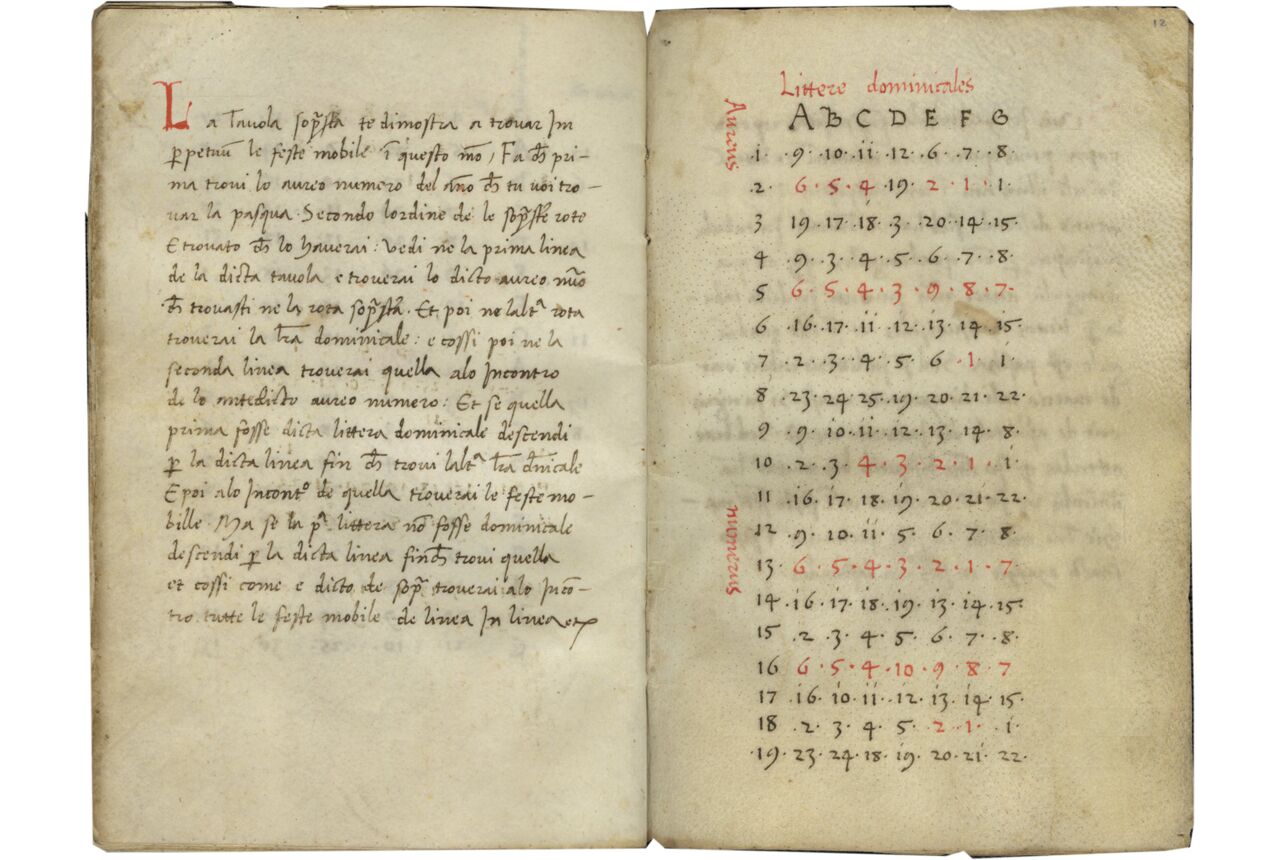 La Tavola sop̃sta te dimostra a trovar In
ꝑpetuũ le feste mobile ĩ questo mõ, Fa ch̃ pri-
ma trovi lo aureo numero del año ch̃ tu voi tro-
var la pasqua. Secondo lordine de le sop̃ste rote
E trovato ch̃ lo haverai: Vedi ne la prima linea
de la dicta tavola e troverai lo dicto aureo nũo
ch̃ trovasti ne la rota sop̃sta. Et poi ne laltᵃ rota
troverai la lr̃a dominicale: e cossi poi ne la
seconda linea troverai quella alo Incontro
de lo antedicto aureo numero: Et se quella
prima fosse dicta littera dominicale descendi
ꝑ la dicta linea fin ch̃ trovi laltᵃ lr̃a dñicale
E poi alo Incontᵒ de quella troverai le feste mo-
bille. Ma se la pᵃ littera nõ fosse dominicale
descendi ꝑ la dicta linea finch̃ trovi quella
et cossi come e dicto de sop̃ troverai alo Incõ-
tro tutte le feste mobile de linea In linea
12
Littere dominicales
Aureus
numerus
A B C D E F G
·1· 9· 10· 11· 12· 6· 7· 8·
2· 6· 5· 4· 19· 2· 1· 1·
3 19· 17· 18· 3· 20· 14· 15·
4 ·9· 3· 4· 5· 6· 7· 8·
5 6· 5· 4· 3· 9· 8· 7·
6 ·16· 17· 11· 12· 13· 14· 15·
7 ·2· 3· 4· 5· 6 ·1· 1·
8 ·23· 24· 25· 19· 20· 21· 22·
9 ·9· 10· 11· 12· 13· 14· 8·
10 ·2· 3· 4· 3· 2· 1· 1·
11 ·16· 17· 18· 19· 20· 21· 22·
12 ·9· 10· 11· 5· 6· 7· 8·
13 6· 5· 4· 3· 2· 1· 7·
14 ·16· 17· 18· 19· 13· 14· 15·
15 ·2· 3· 4· 5· 6· 7· 8·
16 6· 5· 4· 10· 9· 8· 7
17 ·16· 10· 11· 12· 13· 14· 15·
18 ·2· 3· 4· 5· 2· 1· 1·
·19· 23· 24· 18· 19· 20· 21· 22·